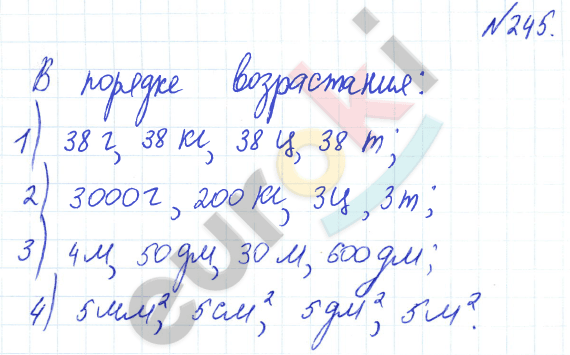 №245.
В порядке возрастания:
1) 38 г, 38 кг, 38 ц, 38 т;
2) 3000 г, 200 кг, 3 ц, 3 т;
3) 4 м, 50 дм, 30 м, 600 дм;
4) 5 мм², 5 см², 5 дм², 5 м².
euroki